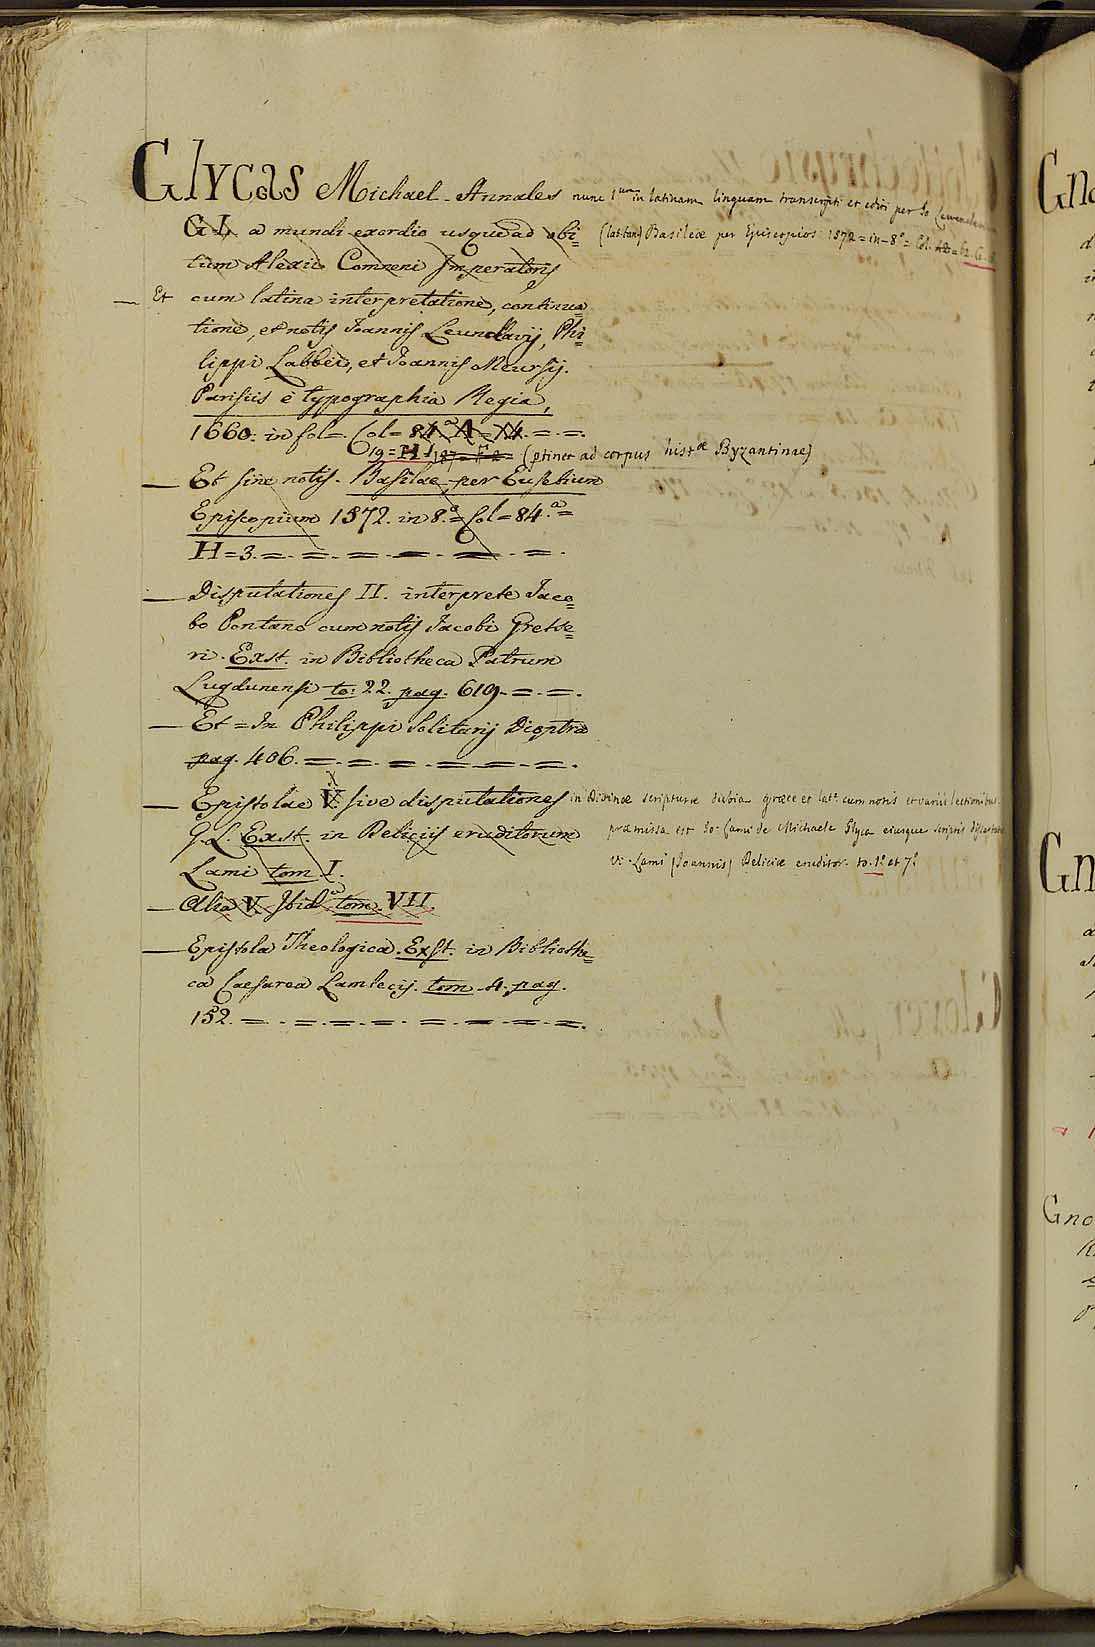 Glycas Michael Annales nunc 1um in latinam linguam transcripti et editi per Jo
G L. a mundi exordio usque ad obi= (lat. tan) Basileæ per Episcopios 1572 = in-8° = Col.
tum Alexii Comneni Imperatoris
— Et cum latina interpretatione, continua=
tione, et notis Joannis Leunclavij, Phi=
lippi Labbei, et Joannis Meursij.
Parisiis è typographia Regia,
1660: in fol=. Col= 84ª A= X4. =. =.
G19 = H 1 (ptinet ad corpus histæ Byzantinæ)
— Et sine notis. Basilae, per Eusebium
Episcopium 1572. in 8.° = Col = 84.ª =
H = 3. =. =. =. =. =. =.
— Disputationes II. interprete Jaco=
bo Pontano cum notis Jacobi Gretse=
ri. Exst. in Bibliotheca Patrum
Lugdunensi to: 22. pag. 619. =. =.
— Et = In Philippi Solitarij Dioptra
pag. 406. =. =. =. =. =. =.
— Epistolae V. sive disputationes in Divinæ scripturæ dubia græce et latè cum notis et variis lectionibus.
G. L. Exst. in Deliciis eruditorum præmissa est Jo. Lami de Michaele Glyca eiusque scriptis
Lami tom I. Vi. Lami (Joannis) Deliciæ eruditor. to. 1° et 7°
— Alia V. Ibid. tom. VII.
— Epistola Theologica. Exst. in Bibliothe=
ca Caesarea Lambecij. tom. 4. pag.
152. =. =. =. =. =. =. =. =.